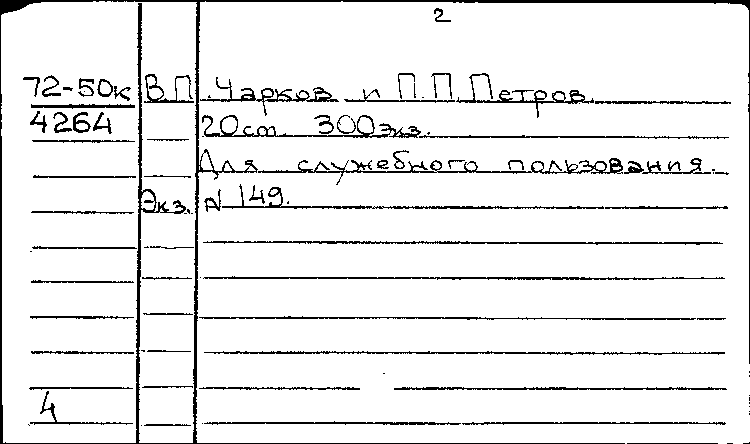 2
72-50к В.П. Чарков и П.П. Петров.
4264 20см. 300экз.
Для служебного пользования.
Экз. N 149.
4